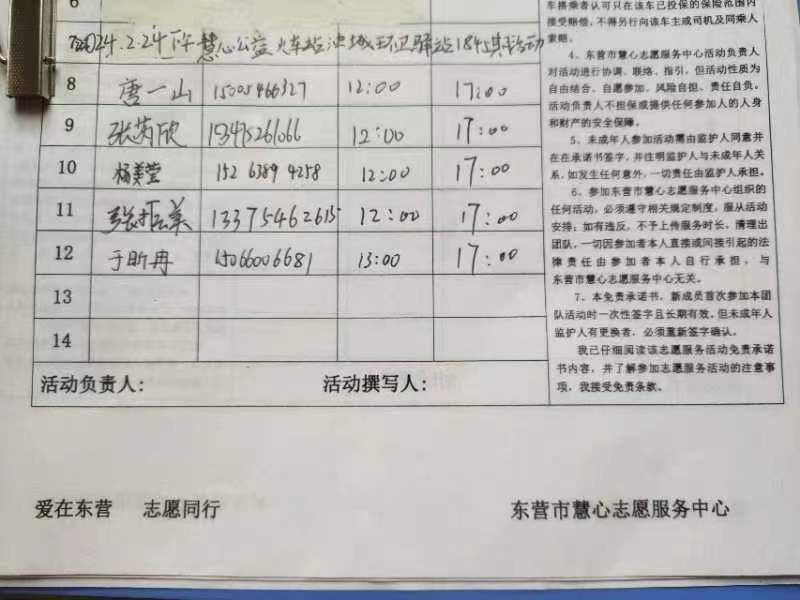 6
7 2024.2.24下午慧心公益火车站油城环卫驿站1845期活动
8 唐一山 15005466327 12:00 17:00
9 张芮欣 13475261066 12:00 17:00
10 杨美莹 152 6389 4258 12:00 17:00
11 张振美 13375462615 12:00 17:00
12 于昕冉 15066006681 13:00 17:00
13
14
活动负责人： 活动撰写人：
车搭乘者认可只在该车已投保的保险范围内
接受赔偿，不得另行向该车主或司机及同乘人
索赔。
4、东营市慧心志愿服务中心活动负责人
对活动进行协调、联络、指引，但活动性质为
自由结合、自愿参加、风险自担、责任自负。
活动负责人不担保或提供任何参加人的人身
和财产的安全保障。
5、未成年人参加活动需由监护人同意并
在在承诺书签字，并注明监护人与未成年人关
系，如发生任何意外，一切责任由监护人承担。
6、参加东营市慧心志愿服务中心组织的
任何活动，必须遵守相关规定制度，服从活动
安排；如有违反，不予上传服务时长，清理出
团队，一切因参加者本人直接或间接引起的法
律责任由参加者本人自行承担，与
东营市慧心志愿服务中心无关。
7、本免责承诺书，新成员首次参加本团
队活动时一次性签字且长期有效。但未成年人
监护人有更换者，必须重新签字确认。
我已仔细阅读该志愿服务活动免责承诺
书内容，并了解参加志愿服务活动的注意事
项，我接受免责条款。
爱在东营 志愿同行 东营市慧心志愿服务中心